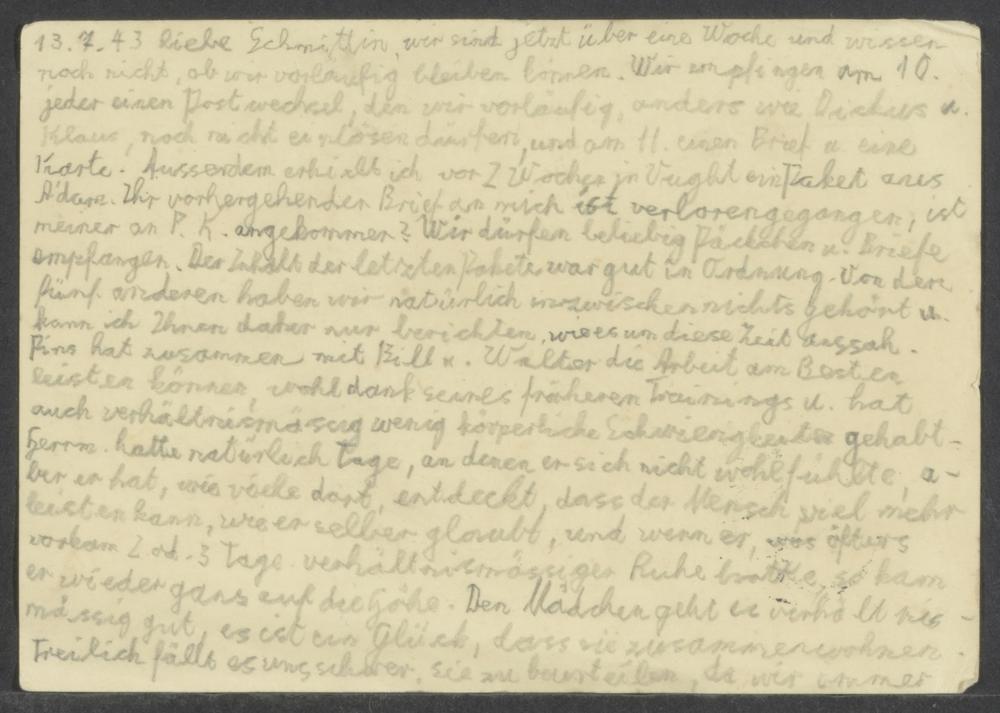 13.7.43 Liebe Schmittin, wir sind jetzt über eine Woche und wissen
noch nicht, ob wir vorläufig bleiben können. Wir empfingen am 10.
jeder einen Postwechsel, den wir vorläufig, anders wie u.
Klaus, noch nicht einlösen dürfen, und am 11. einen Brief u. eine
Karte. Ausserdem erhielt ich vor 2 Wochen in Vught ein Paket aus
A'dam. Ihr vorhergehender Brief an mich ist verlorengegangen, ist
meiner an P. K. angekommen? Wir dürfen beliebig Päckchen u. Briefe
empfangen. Der Inhalt der letzten Pakete war gut in Ordnung. Von den
fünf anderen haben wir natürlich inzwischen nichts gehört u.
kann ich Ihnen daher nur berichten, wie es um diese Zeit aussah.
Pins hat zusammen mit Bill u. Walter die Arbeit am Besten
leisten können, wohl dank seines früheren Trainings u. hat
auch verhältnismässig wenig körperliche Schwierigkeiten gehabt -
Herrm. hatte natürlich Tage, an denen er sich nicht wohl fühlte, a-
ber er hat, wie viele dort, entdeckt, dass der Mensch viel mehr
leisten kann, wie er selber glaubt, und wenn er, was öfters
vorkam 2 od. 3 Tage verhältnismässiger Ruhe hatte, so kam
er wieder ganz auf die Höhe. Den Mädchen geht es verhältnis-
mässig gut, es ist ein Glück, dass sie zusammenwohnen.
Freilich fällt es uns schwer, sie zu beurteilen, da wir immer